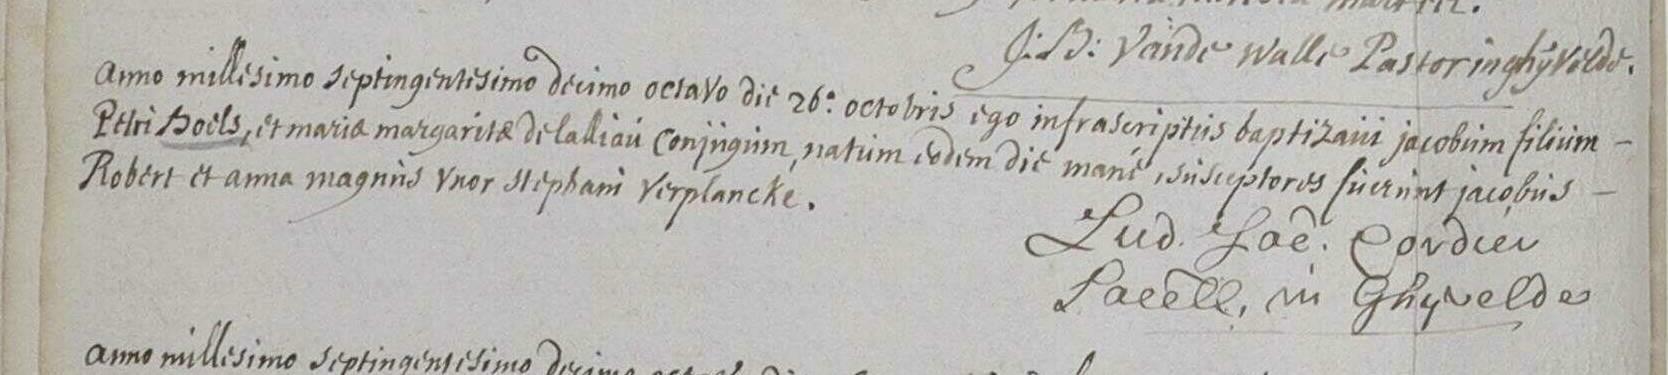 J: B: Vande Walle Pastor in ghÿvelde.
anno millesimo septingentesimo decimo octavo die 26ª octobris ego infrascriptus baptizavi jacobum filium -
Petri Boels, et mariæ margaritæ delalliau Conjugum, natum eodem die mane, susceptores fuerunt jacobus -
Robert et anna magnus uxor stephani verplancke.
Lud. Jac. Cordier
Sacell. in Ghyvelde
anno millesimo septingentesimo decimo